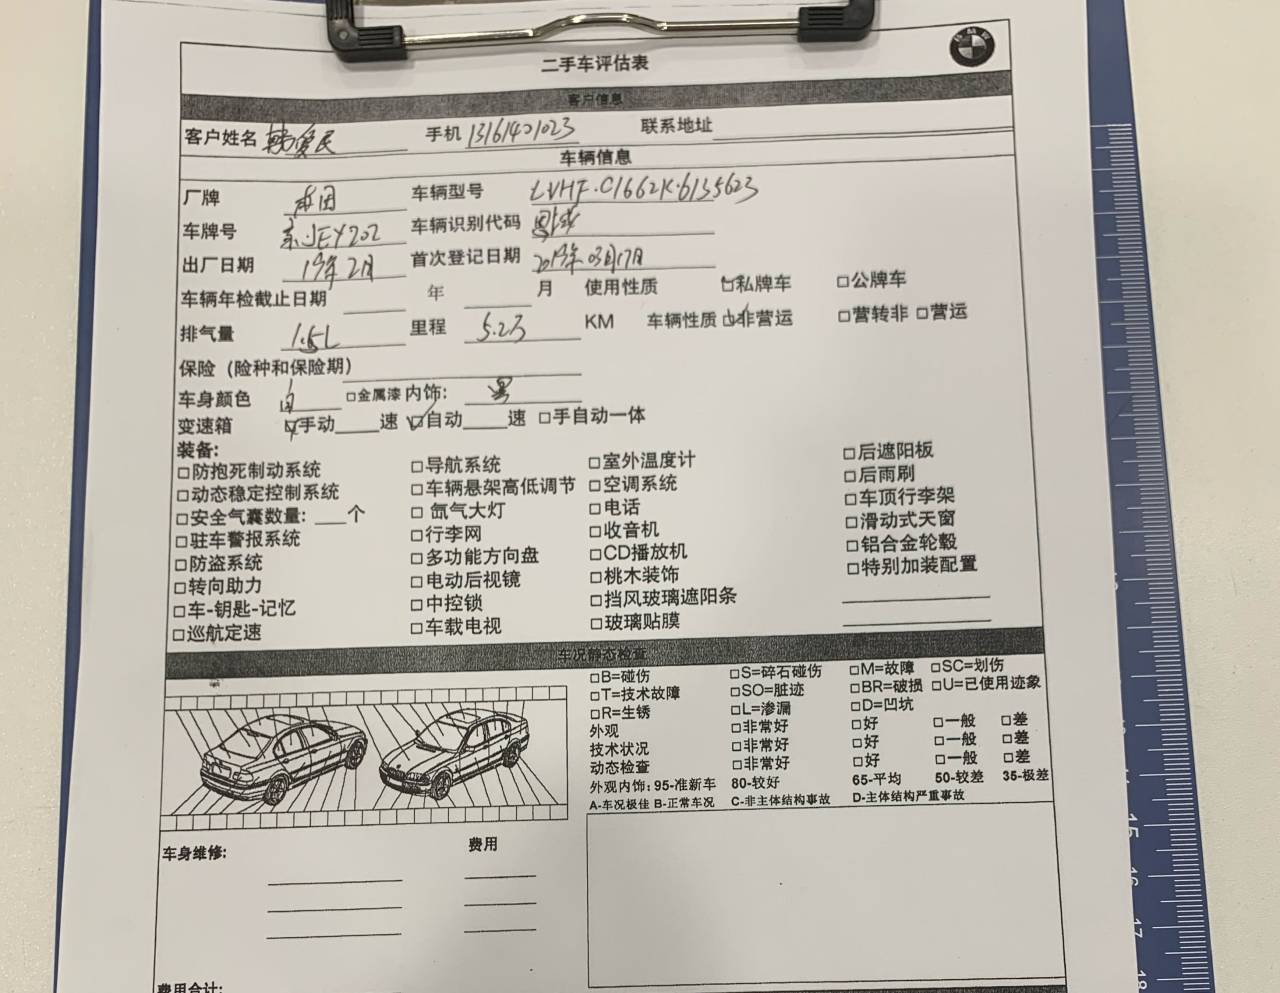 二手车评估表
客户信息
客户姓名 韩爱民 手机 13161401023 联系地址
车辆信息
厂牌 本田 车辆型号 LVHFC1662K6135623
车牌号 京JEY202 车辆识别代码 思域
出厂日期 19年2月 首次登记日期 2019年03月17月
车辆年检截止日期 年 月 使用性质 私牌车 公牌车
排气量 1.5L 里程 5.2万 KM 车辆性质 非营运 营转非 营运
保险（险种和保险期）
车身颜色 白 金属漆 内饰: 黑
变速箱 手动 速 自动 速 手自动一体
装备:
防抱死制动系统 导航系统 室外温度计 后遮阳板
动态稳定控制系统 车辆悬架高低调节 空调系统 后雨刷
安全气囊数量: 个 氙气大灯 电话 车顶行李架
驻车警报系统 行李网 收音机 滑动式天窗
防盗系统 多功能方向盘 CD播放机 铝合金轮毂
转向助力 电动后视镜 桃木装饰 特别加装配置
车-钥匙-记忆 中控锁 挡风玻璃遮阳条
巡航定速 车载电视 玻璃贴膜
车况静态检查
B=碰伤 S=碎石碰伤 M=故障 SC=划伤
T=技术故障 SO=脏迹 BR=破损 U=已使用迹象
R=生锈 L=渗漏 D=凹坑
外观 非常好 好 一般 差
技术状况 非常好 好 一般 差
动态检查 非常好 好 一般 差
外观内饰: 95-准新车 80-较好 65-平均 50-较差 35-极差
A-车况极佳 B-正常车况 C-非主体结构事故 D-主体结构严重事故
车身维修: 费用
费用合计:
15
16
17
18